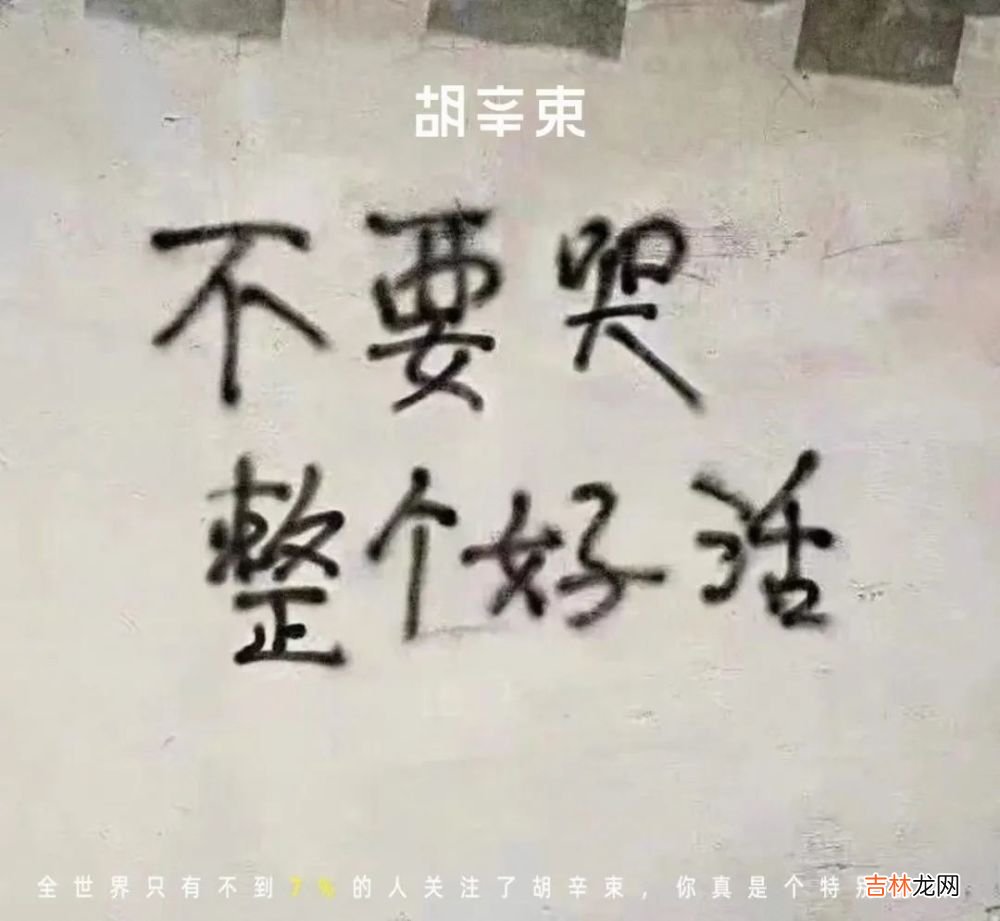 胡辛束
不要哭
整个好活
全世界只有不到7%的人关注了胡辛束，你真是个特别
吉林龙网